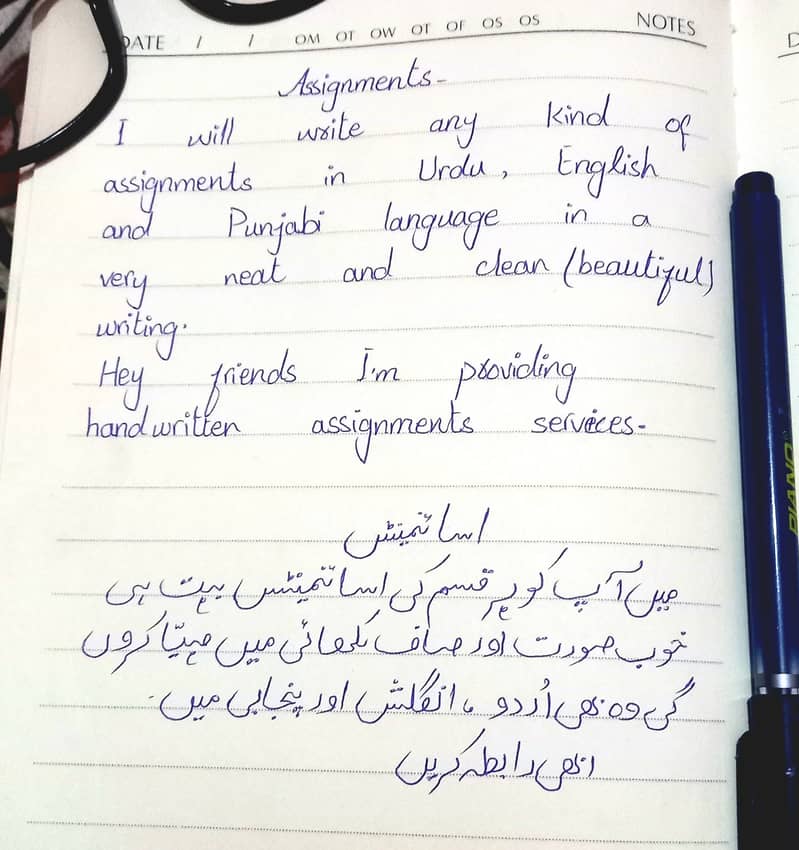 DATE / / OM OT OW OT OF OS OS NOTES
Assignments-
I will write any kind of
assignments in Urdu, English
and Punjabi language in a
very neat and clean (beautiful)
writing.
Hey friends I'm providing
handwritten assignments services-
اسائمنٹس
میں آپ کو ہر قسم کی اسائمنٹس بہت ہی
خوب صورت اور صاف لکھائی میں مہیّا کروں
گی وہ بھی اُردو ، انگلش اور پنجابی میں۔
ابھی رابطہ کریں
PIANO